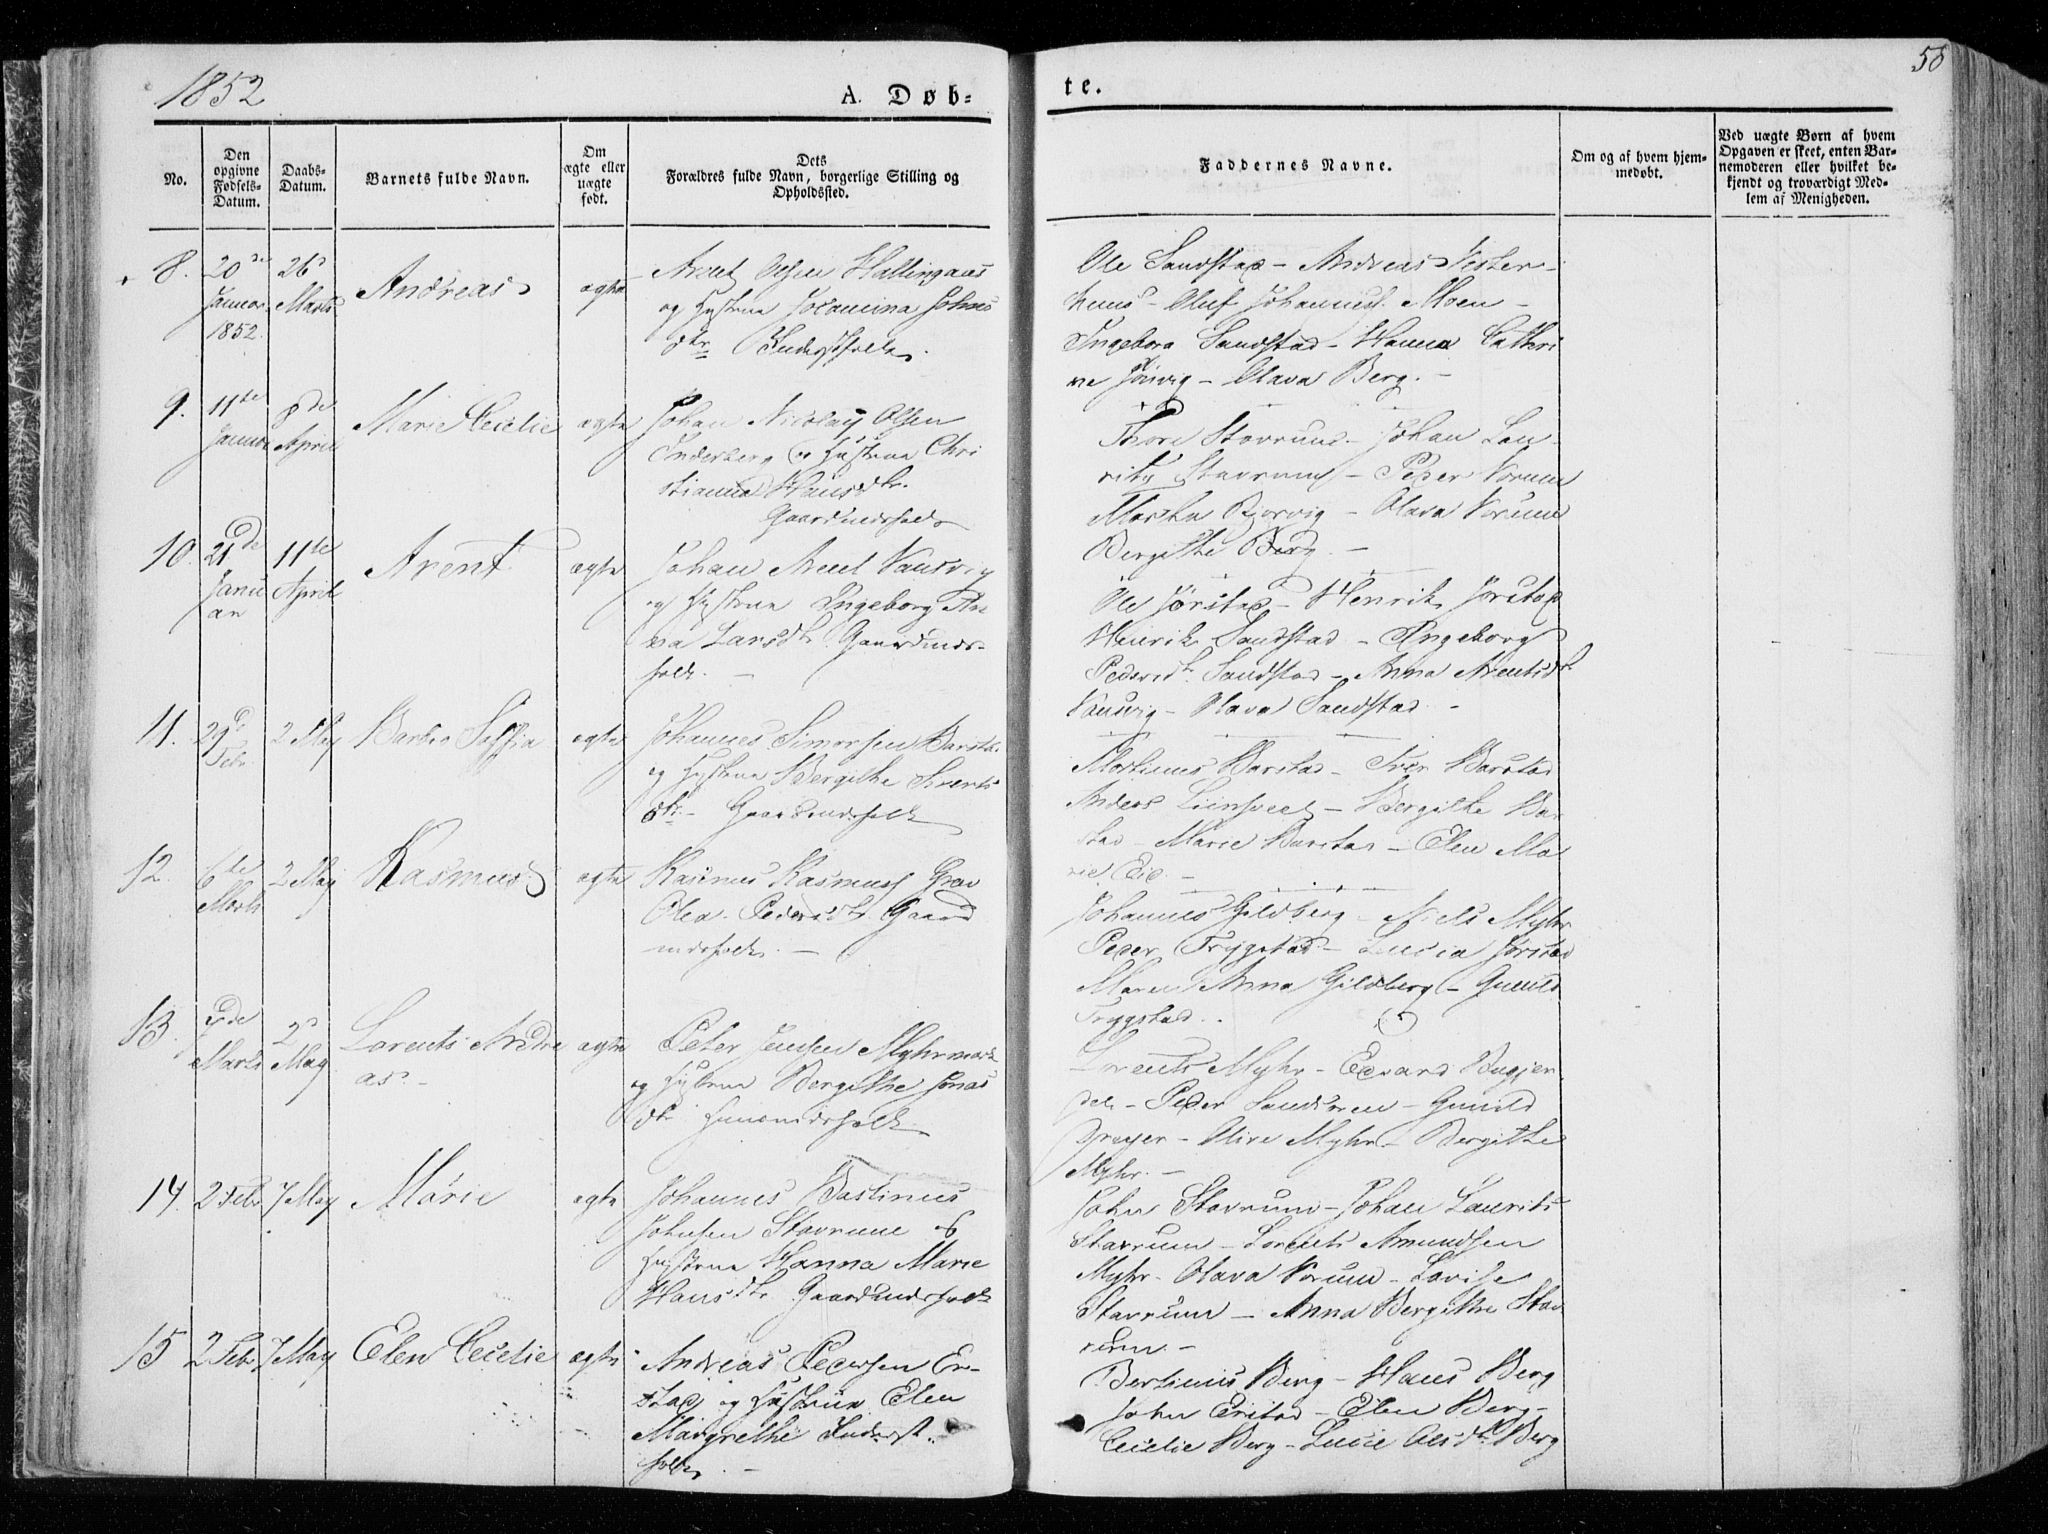 1852
A. Døb-
te.
50
No.
Den opgivne Fødsels-Datum.
Daabs-Datum.
Barnets fulde Navn.
Om ægte eller uægte født.
Dets Forældres fulde Navn, borgerlige Stilling og Opholdssted.
Faddernes Navne.
Om og af hvem hjem-medøbt.
Ved uægte Børn af hvem Opgaven er skeet, enten Bar-nemoderen eller hvilket be-kjendt og troværdigt Med-lem af Menigheden.
8.
20de Januar 1852.
26 Marts
Andreas
ægte
Arent Olsen Hallingaas
og Hustrue Johns
dtr
Ole Sandstad - Andreas Vester-
huus - Oluf Johannes. Moen -
Ingeborg Sandstad - Hanna Cathri
ne - Olava Berg. -
9.
11te Januar
8de April
Marie Cecilie
ægte
Johan Nicolay Olsen
Inderberg og Hustrue Chri
stianna Hansdtr.
Gaardmandsfolk
Thore Stavrum - Johan Lau-
rits Stavrum - Peder Vorum
Martha - Olava Vorum
Bergithe Berg. -
10.
21de Januar
11te April
Arent
ægte
Johan Arent Vandvig
og Hustrue Ingeborg An
na Larsdtr. Gaardmands-
folk. -
Ole Jørstad - Henrik Jørstad
Henrik Sandstad - Ingeborg
Pedersdtr. Sandstad - Anna Arentsdtr
Vandvig - Olava Sandstad -
11.
29de Febr.
2 May
Barbro Soffia
ægte
Johannes Simonsen Barstad
og Hustrue Bergithe Siverts
dtr. - Gaardmandsfolk
Martinus Barstad - Iver Barstad
Anders - Bergithe Bar
stad - Marie Barstad - Elen Ma
rie -
12.
6te Marts
2 May
Rasmus
ægte
Rasmus Rasmuss.
Olea Pedersdtr. Gaard
mandsfolk. -
Johannes Gildberg - Niels Myhr
Peder Trygstad - Lucia Jørstad
Maren Anna Gildberg - Gunild
Trygstad.
13.
7de Marts
2 May
Lorents Andre
as. -
ægte
Peter Jensen Myhr
og Hustrue Bergithe Jonas
dtr. Huusmandsfolk
Lorents Myhr - Edvard
- Peder Sandmoen - Gunild
Dreyer - Olive Myhr - Bergithe
Myhr. -
14.
2 Febr
7 May
Marie
ægte
Johannes Bastinus
Johnsen Stavrum og
Hustrue Hanna Marie
Hansdtr. Gaardmandsfolk
John Stavrum - Johan Laurits
Stavrum - Lorents Amundsen
Myhr - Olava Vorum - Lovise
Stavrum - Anna Bergithe Stav
rum -
15
2 Febr
7 May
Elen Cecilie
ægte
Andreas Pedersen Er-
stad og Hustrue Elen
Margrethe Inderst
folk. -
Bertinus Berg - Hans Berg
John Erstad - Elen Berg -
Cecilie Berg - Lucie Olsdtr. Berg